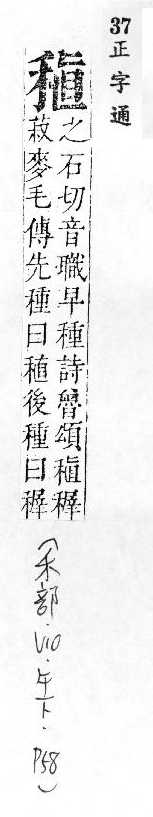 37 正字通
稙
之石切音職早種詩魯頌稙稺
菽麥毛傳先種曰稙後種曰稺
(禾部.V10.午下.P58)